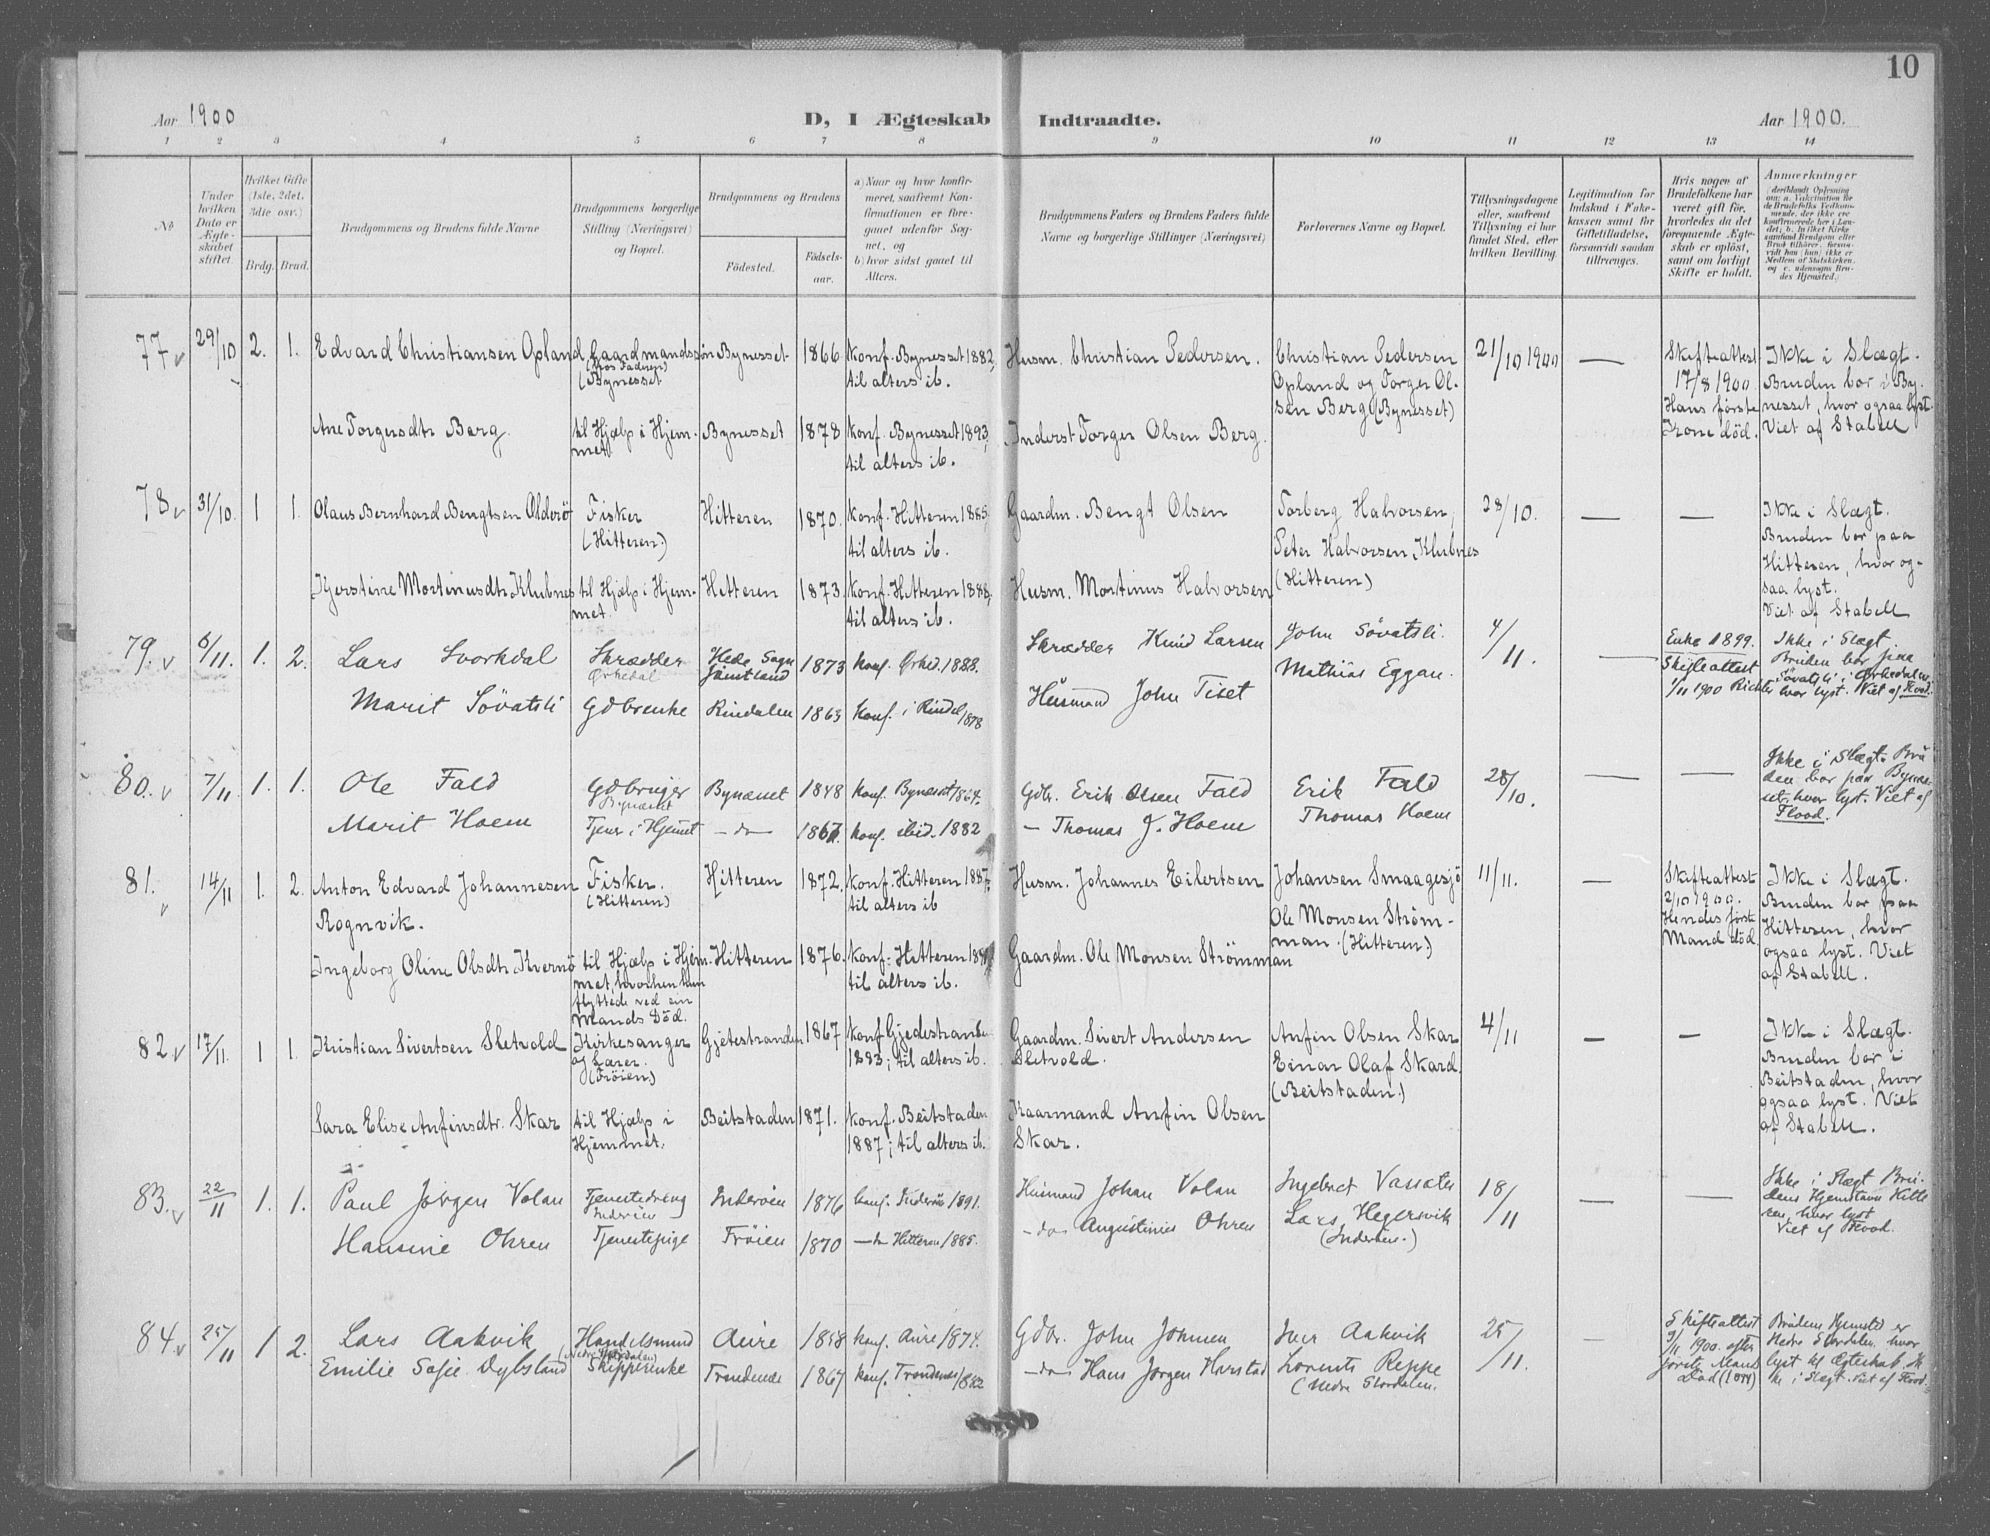 10
Aar 1900
D, I Ægteskab Indtraadte.
Aar 1900.
1 2 3 4 5 6 7 8 9 10 11 12 13 14
No
Under hvilken Dato er Ægteskabet stiftet.
Hvilket Gifte (1ste, 2det, 3die osv.)
Brdg. Brud.
Brudgommens og Brudens fulde Navne
Brudgommens borgerlige Stilling (Næringsvei) og Bopæl.
Brudgommens og Brudens
Födested.
Födselsaar.
a) Naar og hvor konfirmeret, saafremt Konfirmationen er foregaaet udenför Sognet, og
b) hvor sidst gaaet til Alters.
Brudgommens Faders og Brudens Faders fulde Navne og borgerlige Stillinger (Næringsvei)
Forlovernes Navne og Bopæl.
Tillysningsdagene eller, saafremt Tillysning ei har fundet Sted, efter hvilken Bevilling.
Legitimation for Indskud i Enkekassen samt for Giftetilladelse, forsaavidt saadan tiltrænges.
Hvis nogen af Brudefolkene har været gift för, hvorledes da det foregaaende Ægteskab er oplöst, samt om lovligt Skifte er holdt.
Anmærkninger
77 29/10 2. 1. Edvard Christiansen Opland Gaardmandssön (hos Faderen) (Bynesset Bynesset 1866 Konf. Bynesset 1882, til alters ib.
Husm. Christian Pedersen. Christian Pedersen Opland og Torger Olsen Berg (Bynesset) 21/10 1900 — Skifteattest 17/8 1900 Hans første Kone död. Ikke i Slægt. Bruden bor i Bynesset, hvor ogsaa lyst. Viet af Stabell
Ane Torgersdtr Berg. til Hjælp i Hjemmet Bynesset 1878 Konf. Bynesset 1893, til alters ib.
Inderst Torger Olsen Berg.
78 31/10. 1 1. Olaus Bernhard Bengtsen Olderö Fisker (Hitteren.) Hitteren 1870. Konf. Hitteren 1885 til alters ib.
Gaardm. Bengt Olsen Torberg Halvorsen, Peter Halvorsen Klubnes (Hitteren) 28/10. — — Ikke i Slægt. Bruden bor paa Hitteren, hvor ogsaa lyst. Viet af Stabell
Kjerstine Mortinusdtr Klubnes til Hjælp i Hjemmet. Hitteren 1873. Konf. Hitteren 1888, til alters ib.
Husm. Mortinus Halvorsen
79. 6/11. 1. 2. Lars Svorkdal Skrædder Ørkedal Hede Sogn Jämtland 1873 Konf. Ørked. 1888.
Skrædder Knud Larsen John Sövatsli. Mathias Eggan. 4/11. — Enke 1899. Skifteattest 1/11 1900 Ikke i Slægt Bruden bor paa Sövatsli i Ørkedalen hvor lyst. Viet af Flood.
Marit Sövatsli Gdbrenke Rindalen 1863 Konf. i Rindal 1878
Husmand John Tiset
80. 7/11. 1. 1. Ole Fald Gdbruger Bynæsset Bynæsset 1848 Konf. Bynæsset 1864.
Gdbr. Erik Olsen Fald Erik Fald Thomas Hoem 28/10. — — Ikke i Slægt. Bruden bor paa Bynæsset, hvor lyst. Viet af Flood.
Marit Hoem Tjen. i Hjemmet — do — 1867. Konf. ibid. 1882
— Thomas J. Hoem
81. 14/11 1. 2. Anton Edvard Johannesen Rognvik. Fisker. (Hitteren) Hitteren 1872. Konf. Hitteren 1887, til alters ib
Husm. Johannes Eilertsen Johansen Smaagesjö Ole Monsen Strömman. (Hitteren) 11/11. — Skifteattest 2/10 1900. Hendes förste Mand död. Ikke i Slægt. Bruden bor paa Hitteren, hvor ogsaa lyst. Viet af Stabell.
Ingeborg Oline Olsdtr Kvernö til Hjælp i Hjemmet, hvorhen hun flyttede ved sin Mands Död. Hitteren 1876. Konf. Hitteren til alters ib.
Gaardm. Ole Monsen Strömman
82 17/11. 1 1. Kristian Sivertsen Sletvold Kirkesanger og Lærer. (Fröien) Gjetestranden 1867 Konf Gjedestranden 1883; til alters ib.
Gaardm. Sivert Andersen Sletvold. Anfin Olsen Skar Einar Olaf Skard. (Beitstaden.) 4/11 — — Ikke i Slægt. Bruden bor i Beitstaden, hvor ogsaa lyst. Viet af Stabell.
Sara Elise Anfinsdtr. Skar til Hjælp i Hjemmet. Beitstaden 1871. Konf. Beitstaden 1887; til alters ib.
Gaarmand Anfin Olsen Skar.
83. 22/11 1. 1. Paul Jörgen Volan Tjenestedreng Inderöen Inderöen 1876 Konf. Inderöen 1891.
Husmand Johan Volan Ingebret Lars Hegersvik (Inderöen.) 18/11 — — Ikke i Slægt Brudens Hjemstavn Hitteren, hvor lyst Viet af Flood.
Hansine Ohren Tjenestepige Fröien 1870 — do Hitteren 1885.
— do — Augustinus Ohren
84 25/11 1 2. Lars Aakvik Handelsmand (Nedre Stördalen) Aure 1858 Konf. Aure 1874.
Gdbr. John Johnsen Iver Aakvik Lorents Reppe (Nedre Stördalen. 25/11. — Skifteattest 9/11 1900 efter förste Mands Död Brudens Hjemsted er Nedre Stördalen, hvor lyst til Ægteskab. Ikke i Slægt. Viet af Flood.
Emilie Sofie Dybsland Skipperenke Trondenes 1867 Konf. Trondenes 1882
— do — Hans Jörgen Harstad